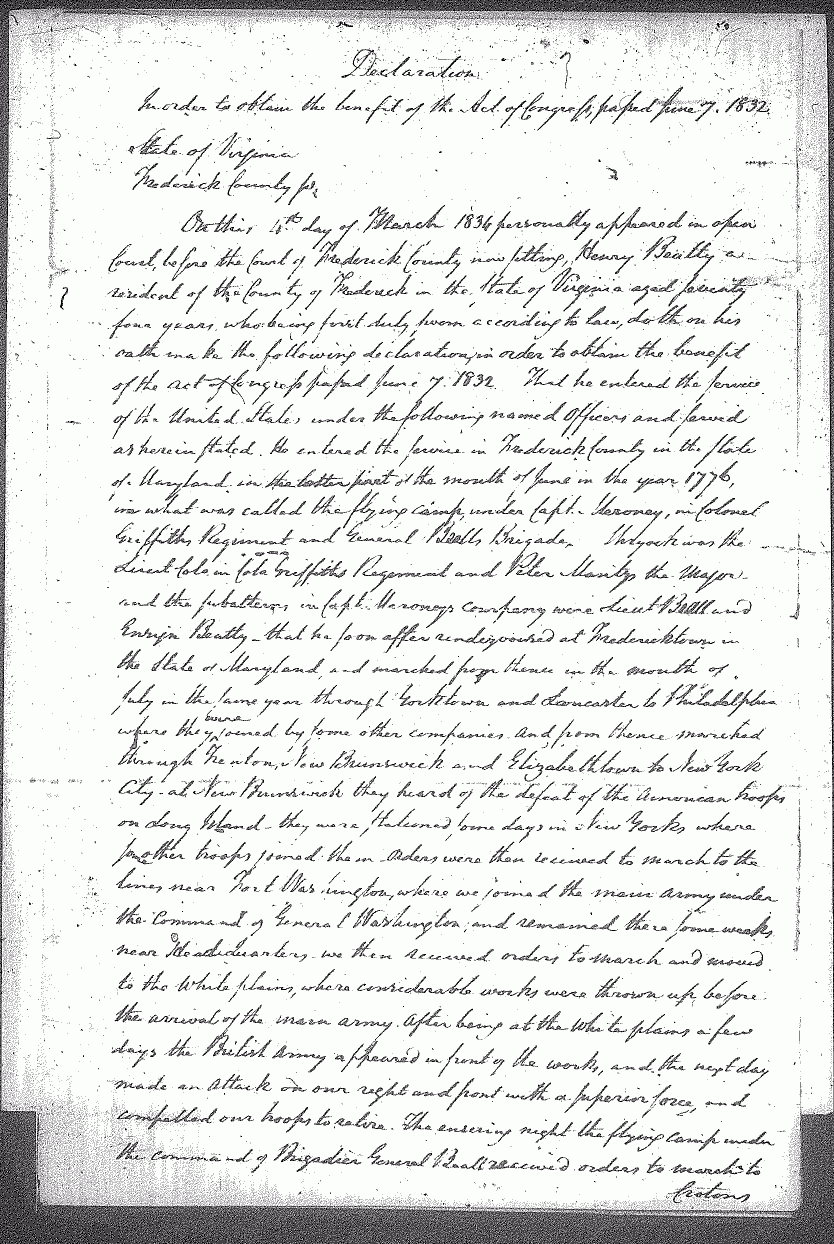 Declaration
In order to obtain the benefit of the Act of Congress, passed June 7. 1832
State of Virginia
Frederick County ss,
On this 4th day of March 1834 personally appeared in open
Court, before the Court of Frederick County now sitting, Henry Beatty a
resident of the County of Frederick in the State of Virginia aged seventy
four years, who being first duly sworn according to law, doth on his
oath make the following declaration, in order to obtain the benefit
of the act of Congress passed June 7. 1832 That he entered the service
of the United States under the following named Officers and served
as herein stated. He entered the service in Frederick County in the State
of Maryland in the latter part of the month of June in the year 1776,
in what was called the flying camp, under Capt. Meroney, in Colonel
Griffiths Regiment and General Bealls Brigade, Shryock was the
Lieut Colo in Colo Griffiths Regiment and Peter Mantzs the Major
and the subalterns in Capt. Meroneys company were Lieut Beall and
Ensign Beatty - that he soon after rendezvoused at Fredericktown in
the State of Maryland, and marched from thence in the month of
July in the same year through Yorktown and Lancaster to Philadelphia
where they were joined by some other companies and from thence marched
through Trenton, New Brunswick and Elizabethtown to New York
City - at New Brunswick they heard of the defeat of the American troops
on Long Island - they were stationed some days in New York where
some other troops joined them orders were then received to march to the
lines near Fort Washington, where we joined the main army under
the command of General Washington, and remained there some weeks
near Headquarters - we then received orders to march and moved
to the White plains, where considerable works were thrown up, before
the arrival of the main army. After being at the White plains a few
days the British Army appeared in front of the works, and the next day
made an attack on our right and front with a superior force, and
compelled our troops to retire. The ensuing night the flying camp under
the command of Brigadier General Beall received orders to march to
Crotons